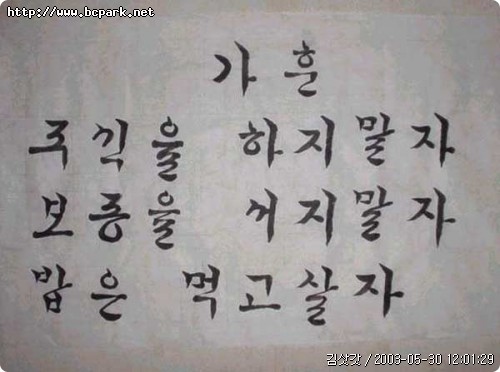 http://www.bcpark.net
가 훈
주식을 하지말자
보증을 서지말자
밥은 먹고살자
김삿갓 / 2003-05-30 12:01:29